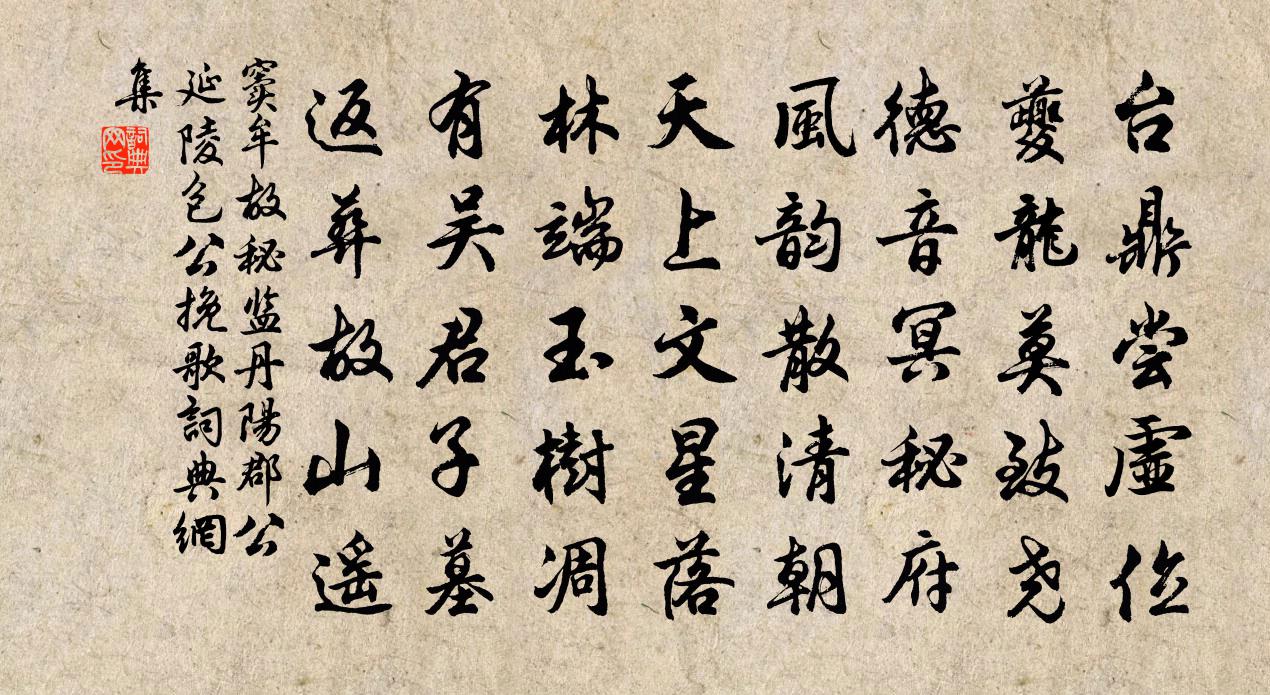 台鼎尝虚位
夔龍莫致尧
德音冥秘府
風韵散清朝
天上文星落
林端玉樹凋
有吴君子墓
返葬故山遥
窦牟故秘监丹陽郡公
延陵包公挽歌詞典網
集
詞典
网印